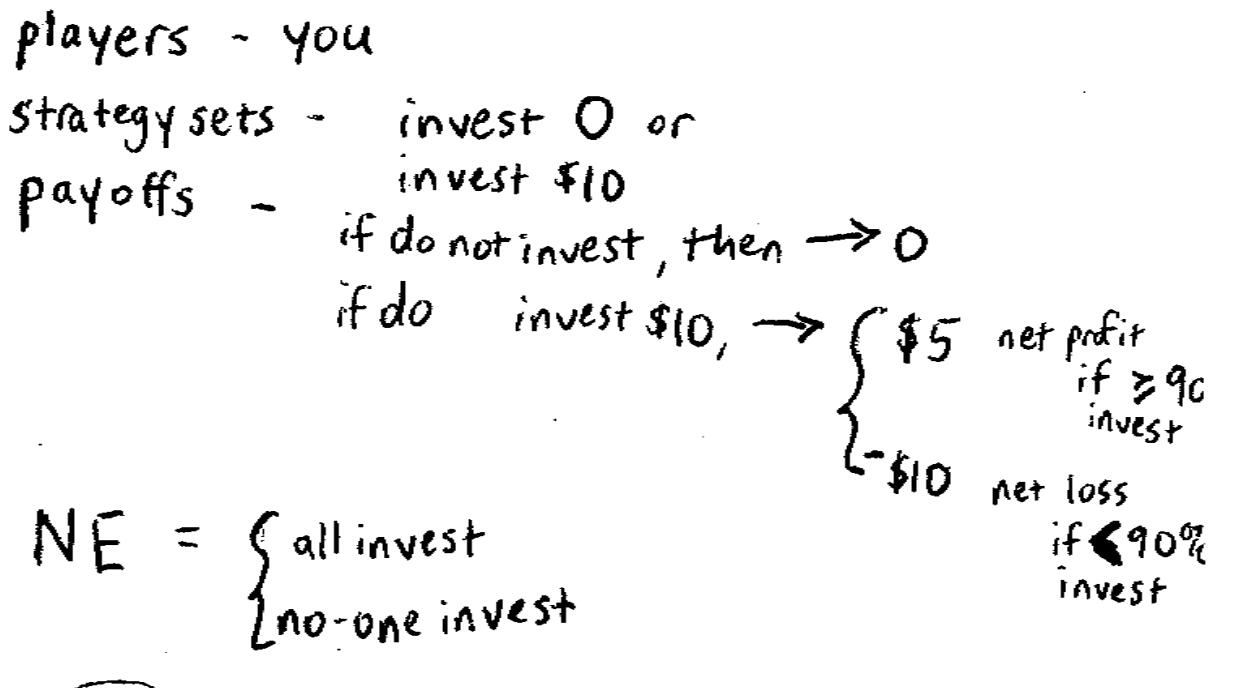 players - you
strategy sets - invest 0 or
invest $10
payoffs -
if do not invest, then → 0
if do invest $10, → { $5 net profit
if ≥ 90
invest
-$10 net loss
if < 90%
invest
NE = { all invest
no-one invest